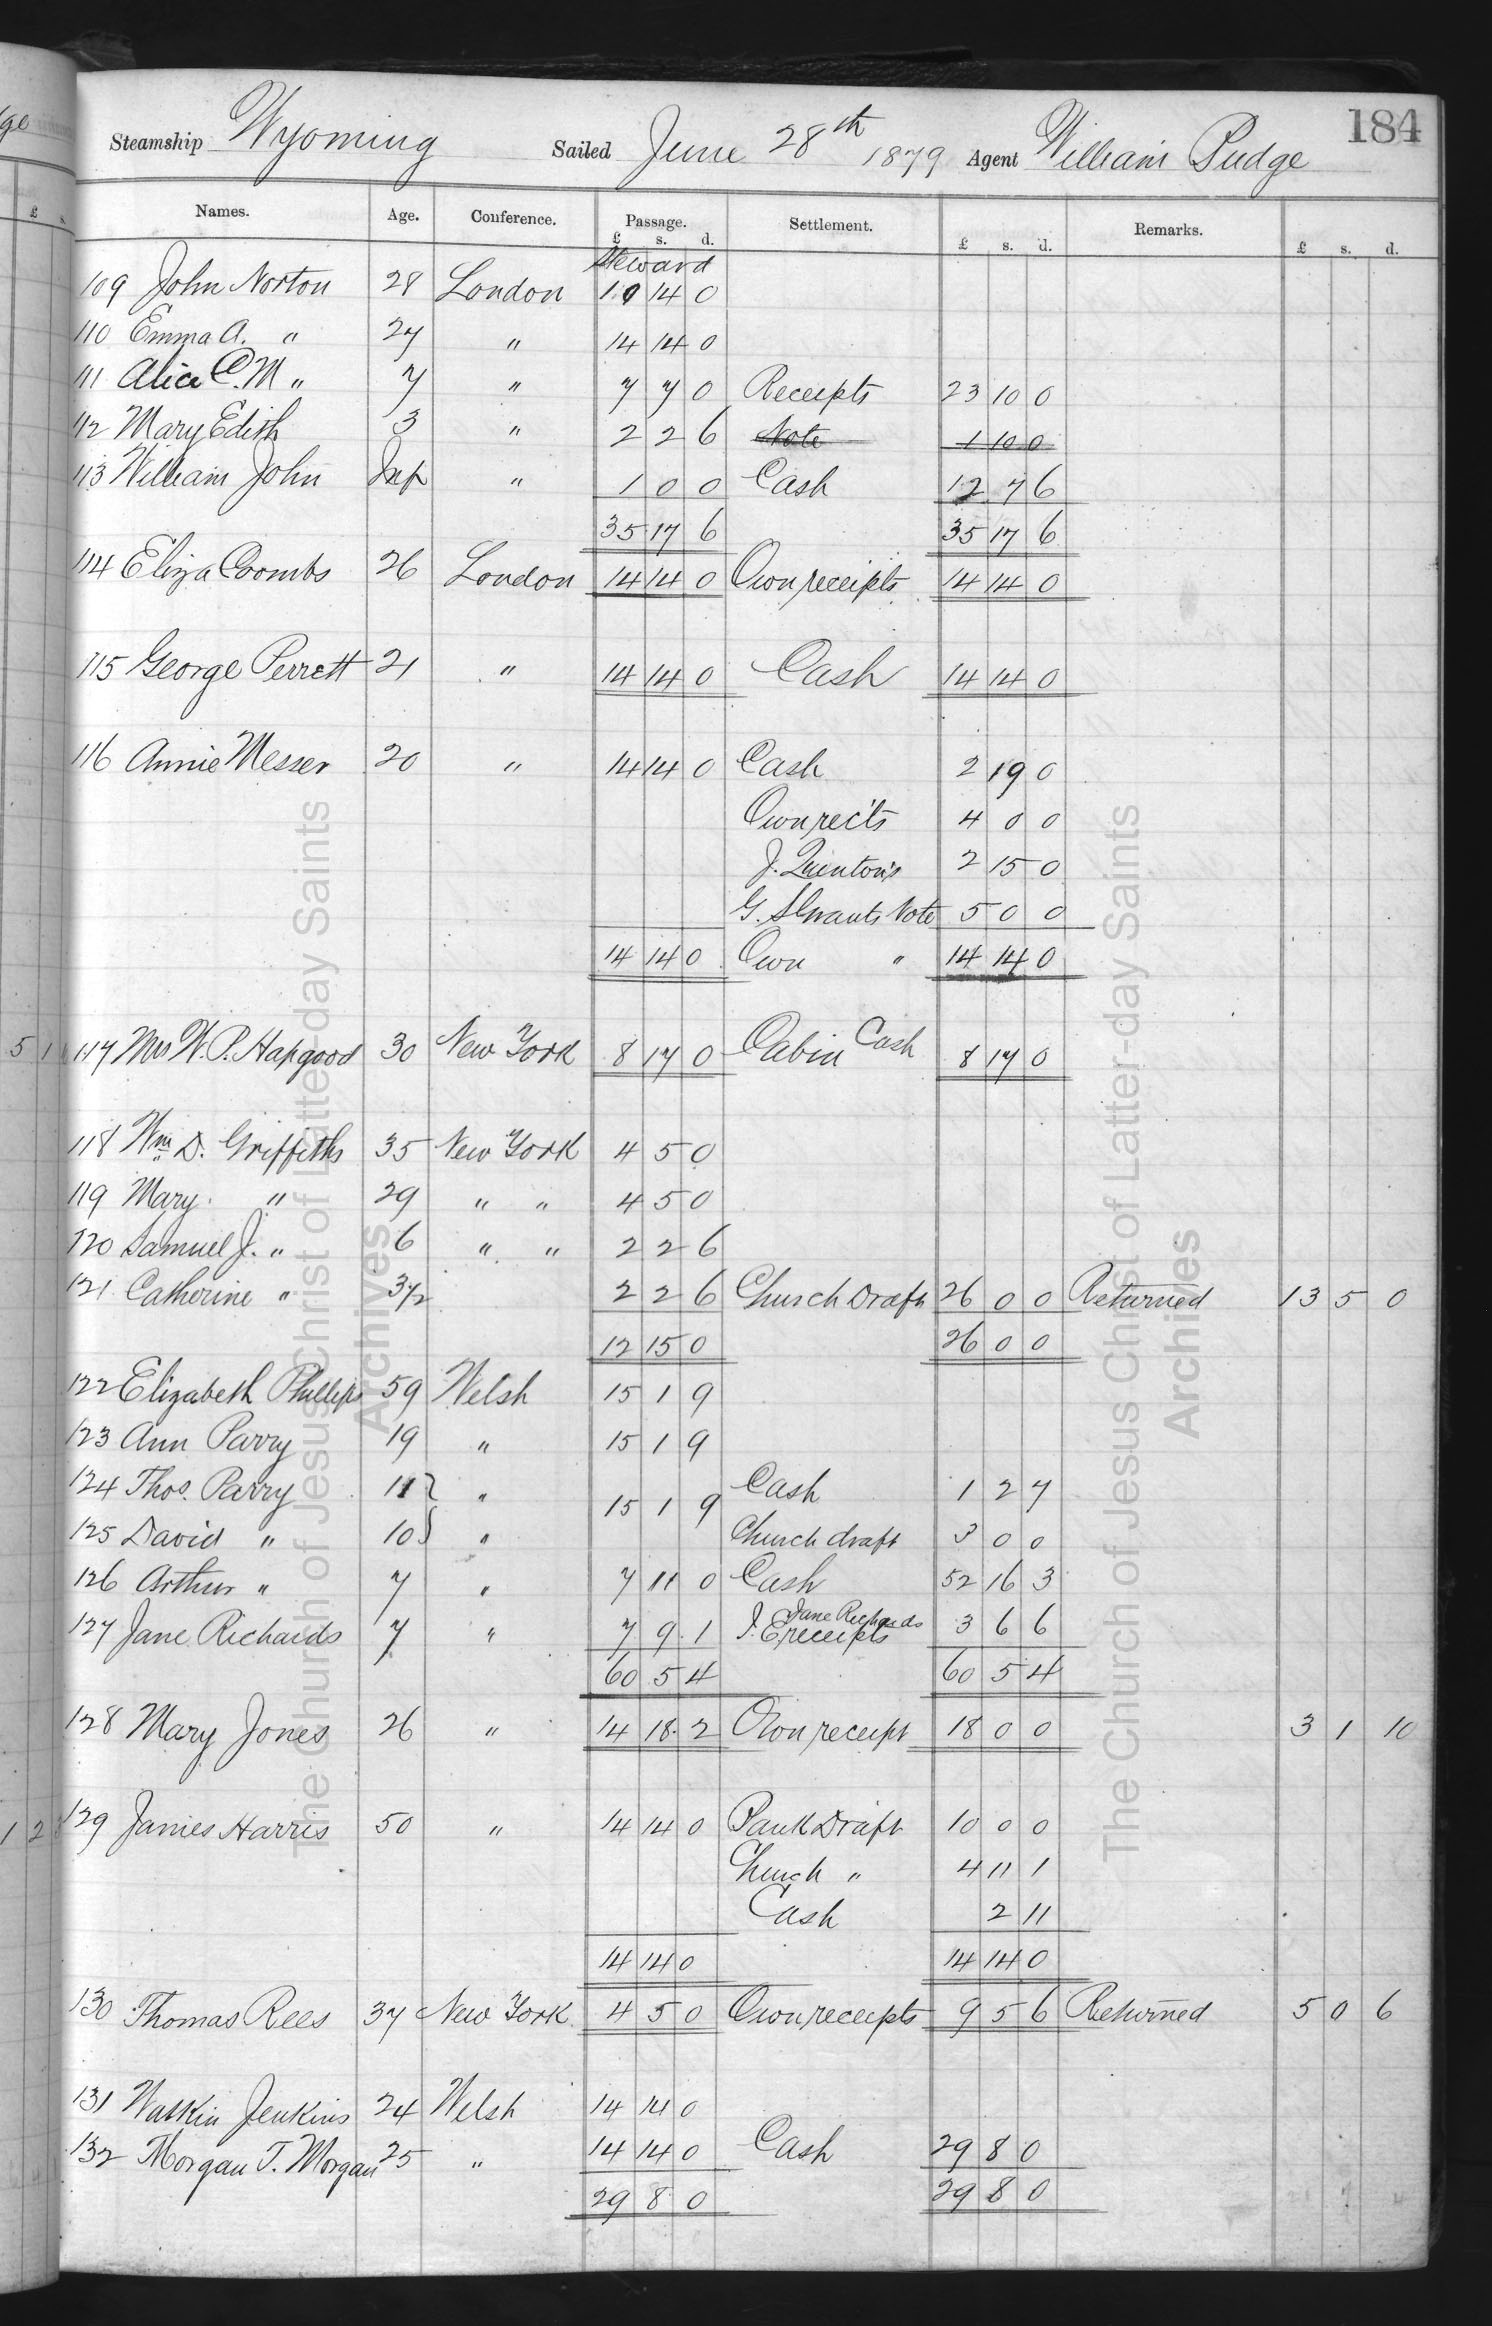 184
Steamship Wyoming Sailed June 28th 1879 Agent William Budge
Names. Age. Conference. Passage. Settlement. Remarks.
£ s. d. £ s. d. £ s. d.
Steward
109 John Norton 28 London 10 14 0
110 Emma A. " 27 " 14 14 0
111 Alice C. M " 7 " 7 7 0 Receipts 23 10 0
112 Mary Edith 3 " 2 2 6 Note 1 10 0
113 William John Inf " 1 0 0 Cash 12 7 6
35 17 6 35 17 6
114 Eliza Coombs 26 London 14 14 0 Own receipts 14 14 0
115 George Perrett 21 " 14 14 0 Cash 14 14 0
116 Annie Messer 20 " 14 14 0 Cash 2 19 0
Own rec'ts 4 0 0
J. Quinton's 2 15 0
G. Note 5 0 0
14 14 0 Own " 14 14 0
5 1 117 Mrs W. P. Hapgood 30 New York 8 17 0 Cabin Cash 8 17 0
118 Wm D. Griffiths 35 New York 4 5 0
119 Mary " 29 " " 4 5 0
120 Samuel J. " 6 " " 2 2 6
121 Catherine " 3/12 2 2 6 Church Draft 26 0 0 Returned 13 5 0
12 15 0 26 0 0
122 Elizabeth Phillips 59 Welsh 15 1 9
123 Ann Parry 19 " 15 1 9
124 Thos. Parry 11 } " 15 1 9 Cash 1 2 7
125 David " 10 } " Church draft 3 0 0
126 Arthur " 7 " 7 11 0 Cash 52 16 3
127 Jane Richards 7 " 7 9 1 J. E. Jane Richards receipts 3 6 6
60 5 4 60 5 4
128 Mary Jones 26 " 14 18 2 Own receipt 18 0 0 3 1 10
1 2 129 James Harris 50 " 14 14 0 Bank Draft 10 0 0
Church " 4 11 1
Cash 2 11
14 14 0 14 14 0
130 Thomas Rees 37 New York 4 5 0 Own receipts 9 5 6 Returned 5 0 6
131 Watkin Jenkins 24 Welsh 14 14 0
132 Morgan T. Morgan 25 " 14 14 0 Cash 29 8 0
29 8 0 29 8 0
The Church of Jesus Christ of Latter-day Saints
Archives
The Church of Jesus Christ of Latter-day Saints
Archives